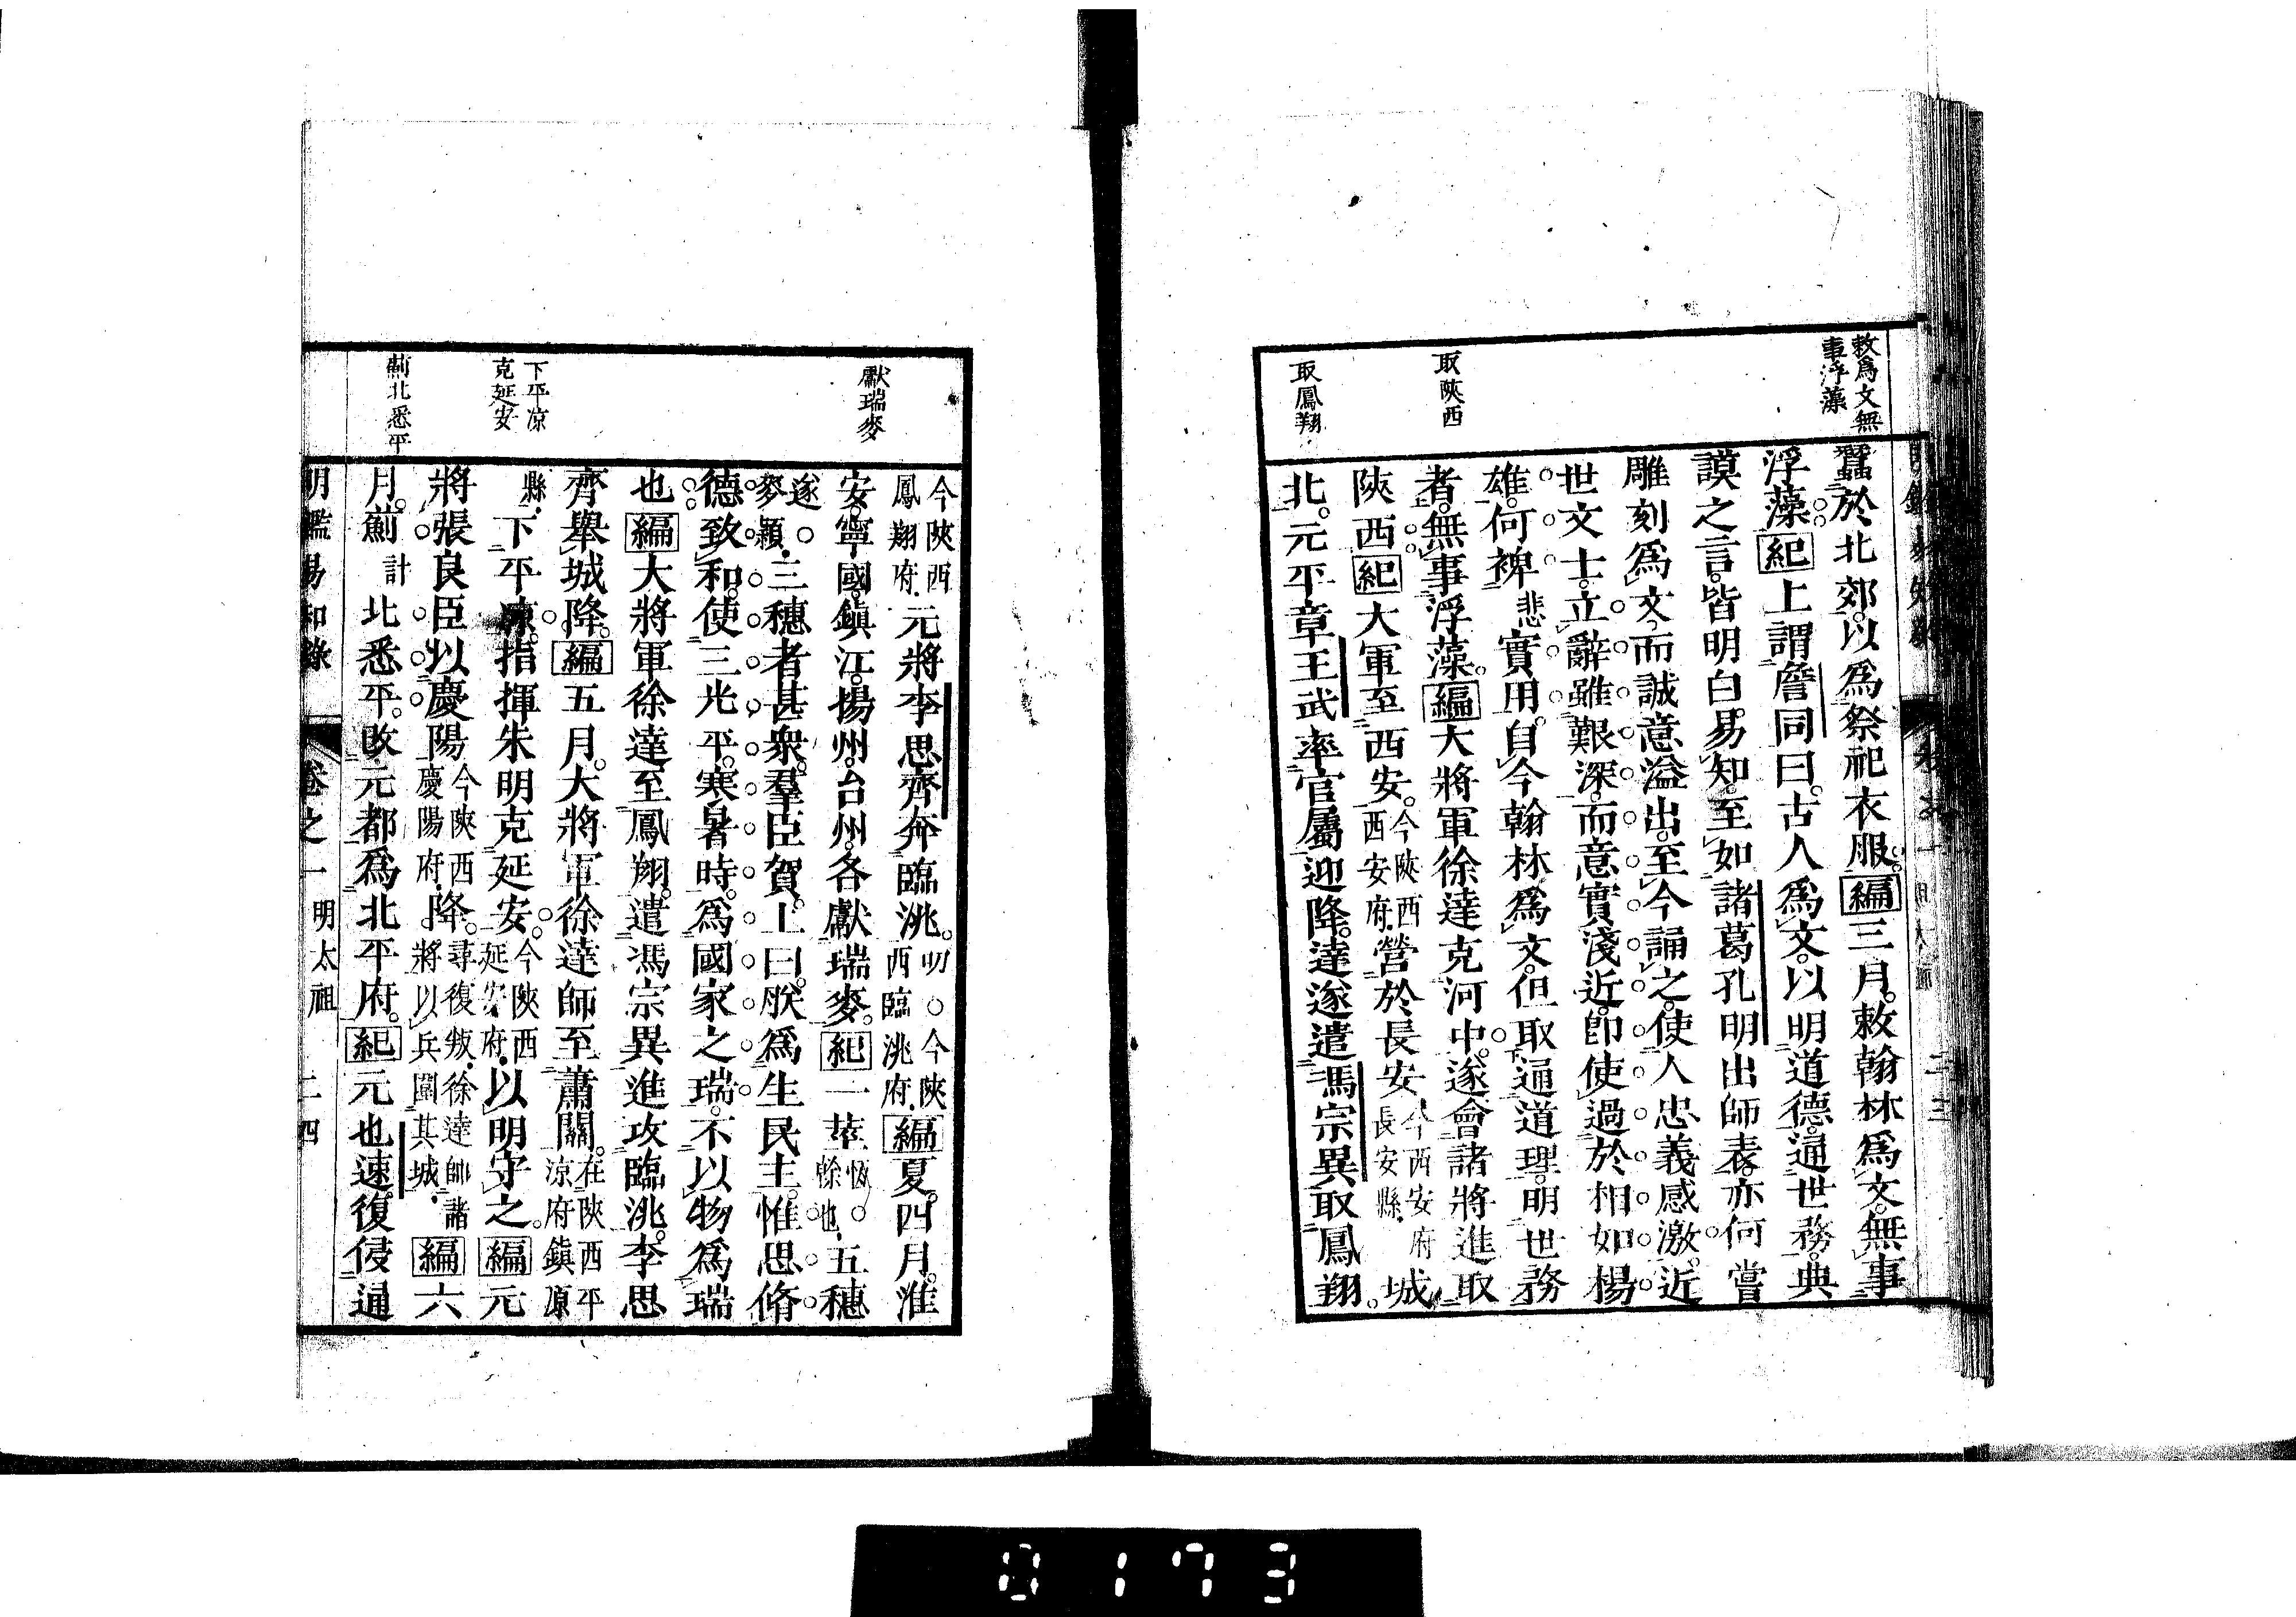 敕爲文無
事浮藻
取陝西
取鳳翔
蠶於北郊。以爲祭祀衣服。編三月。敕翰林爲文。無事
浮藻。紀上謂詹同曰。古人爲文。以明道德。通世務。典
謨之言。皆明白易知。至如諸葛孔明出師表。亦何嘗
雕刻爲文。而誠意溢出。至今誦之。使人忠義感激。近
世文士。立辭雖艱深。而意實淺近。卽使過於相如楊
雄。何裨悲實用。自今翰林爲文。但取通道理。明世務
者。無事浮藻。編大將軍徐達克河中。遂會諸將進取
陝西。紀大軍至西安。今陝西西安府。營於長安今西安府長安縣。城
北。元平章王武率官屬迎降。達遂遣馮宗異取鳳翔。
獻瑞麥
下平凉
克延安
薊北悉平
今陝西鳳翔府。元將李思齊奔臨洮。叨○今陝西臨洮府。編夏。四月。淮
安。寧國。鎮江。揚州。台州。各獻瑞麥。紀一莖五穗
麥穎。三穗者甚衆。羣臣賀。上曰。朕爲生民主。惟思脩
德致和。使三光平。寒暑時。爲國家之瑞。不以物爲瑞
也。編大將軍徐達至鳳翔。遣馮宗異進攻臨洮。李思
齊舉城降。編五月。大將軍徐達師至蕭關。在陝西平凉府鎮原
縣。下平凉。指揮朱明克延安。今陝西延安府。以明守之。編元
將張良臣以慶陽今陝西慶陽府。降。尋復叛。徐達帥諸將以兵圍其城。編六
月。薊計北悉平。改元都爲北平府。紀元也速復侵通
明鑑易知錄 卷之一 明太祖 二四